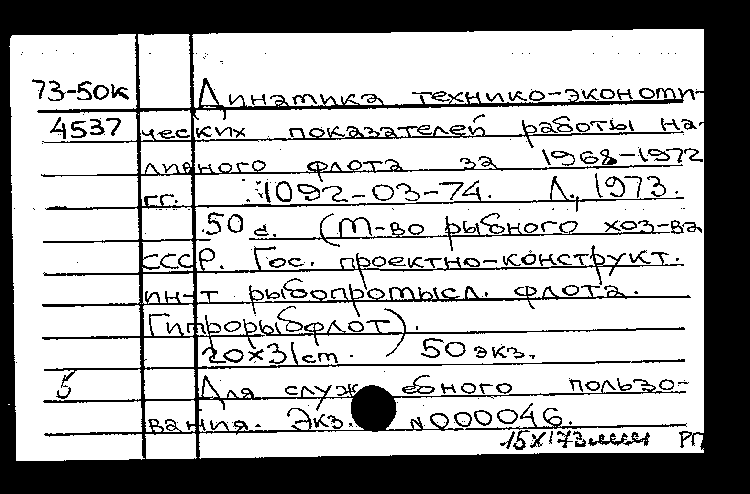 73-50к Динамика технико-экономи-
4537 ческих показателей работы на-
ливного флота за 1968-1972
гг. 1092-03-74. Л., 1973.
50 с. (М-во рыбного хоз-ва
СССР. Гос. проектно-конструкт.
ин-т рыбопромысл. флота.
Гипрорыбфлот).
20×31cm. 50 экз.
5 Для служебного пользо-
вания. Экз. N000046.
15X173 РП